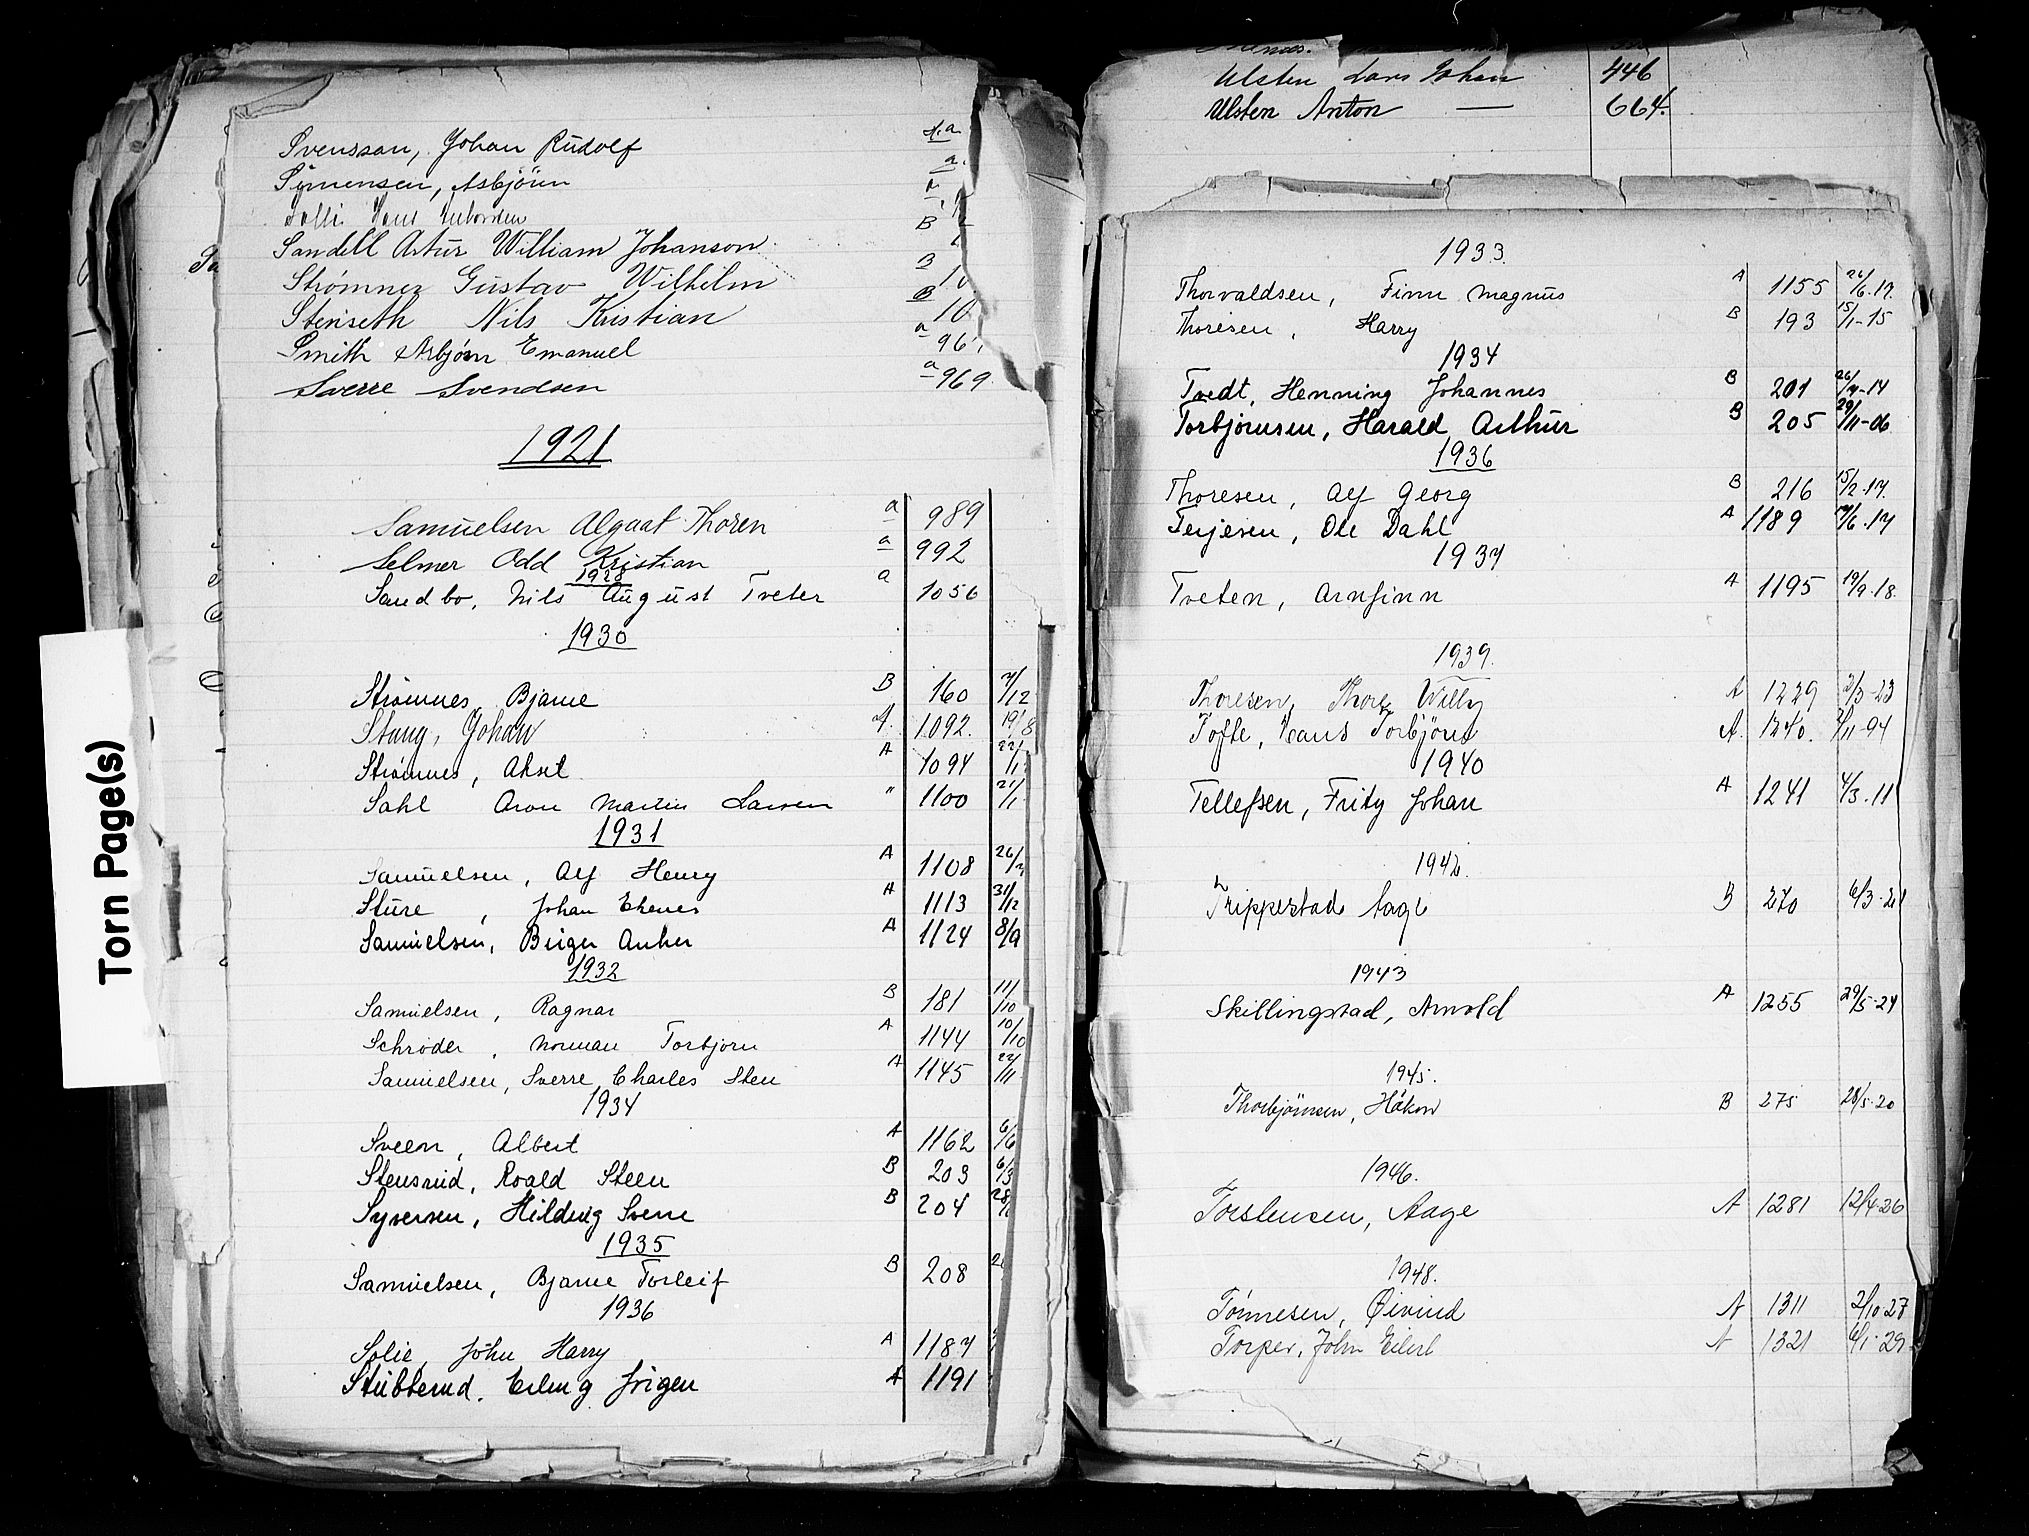 Svensson, Johan Rudolf
Simensen, Asbjörn
B
Sandell Artur William Johanson
Strømnez Gustav Wilhelm B 10
Stenseth Nils Kristian B 10
Smith Asbjørn Emanuel a 967
Sverre Svendsen a 969
1921
Samuelsen Algaat Thoren a 989
Selmer Odd Kristian a 992
1928
Sandbo, Nils August Tveter a 1056
1930
Strømnes, Bjarne B 160 7/12
Stang, Johan A. 1092. 19/8
Strømnes, Aksel A 1094 22/1
Sahl Aron Martin Larsen " 1100 21/1
1931
Samuelsen, Alf Henry A 1108 26/2
Sture, Johan A 1113 31/12
Samuelsen, Birger Anker A 1124 8/9
1932
Samuelsen, Ragnar B 181 11/10
Schrøder, Norman Torbjørn A 1144 10/10
Samuelsen, Sverre Charles Sten A 1145 22/11
1934
Sveen, Albert A 1162 6/6
Stensrud, Roald Steen B 203 6/3
Syversen, Hilding Sverre B 204 28/
1935
Samuelsen, Bjarne Torleif B 208 2
1936
Solie, John Harry A 1187
Stubberud. Erling Jørgen A 1191
Torn Page(s)
Ulsten Lars Johan 446
Ulsten Anton — 664.
1933.
Thorvaldsen, Finn Magnus A 1155 26/6.17.
Thoresen, Harry B 193 15/1-15
1934
Tvedt, Henning Johannes B 201 26/7-14
Torbjørnsen, Harald Arthur B 205 29/11-06
1936
Thoresen, Alf Georg B 216 15/2.17.
Terjesen, Ole Dahl A 1189 19/6.17
1937
Tveten, Arnfinn A 1195 19/9.18.
1939.
Thoresen, Thore Willy A 1229 2/3-23
Tofte, Hans Torbjörn A. 1240. 7/11-94
1940
Tellefsen, Fritz Johan A 1241 4/3.11
1942.
Trippestad Aage B 270 6/3-21
1943
Skillingstad, Arnold A 1255 29/5-24
1945.
Thorbjörnsen, Håkon B 275 28/5-20
1946.
Torstensen, Aage A 1281 12/4-26
1948.
Tönnesen, Øivind A 1311 2/10 27
Torper, John Eilert A 1321 6/1-29